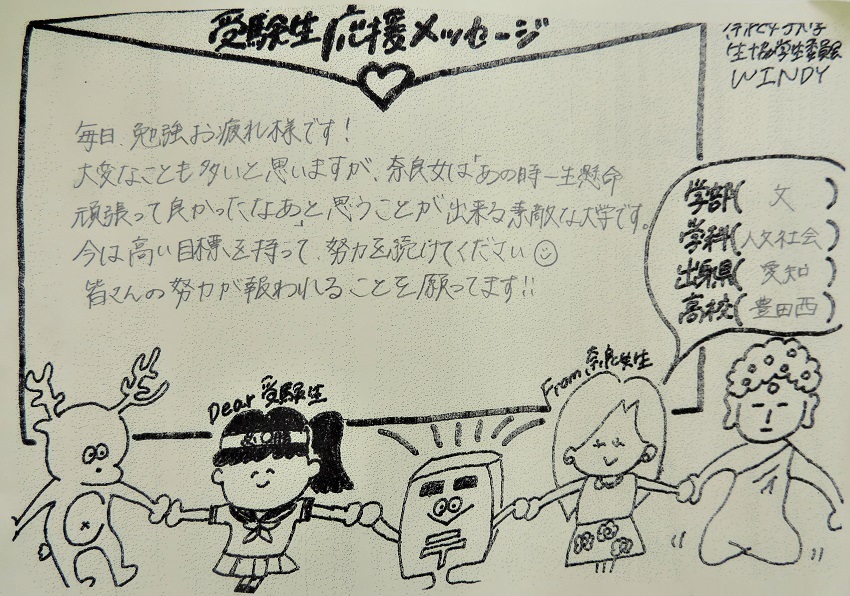 受験生応援メッセージ
生協学生委員会
WINDY
毎日、勉強お疲れ様です！
大変なことも多いと思いますが、奈良女は「あの時一生懸命
頑張って良かったなあ」と思うことが出来る素敵な大学です。
今は高い目標を持って、努力を続けてください☺
皆さんの努力が報われることを願ってます!!
学部(文)
学科(人文社会)
出身県(愛知)
高校(豊田西)
Dear 受験生
From 奈良女生
必勝
〒